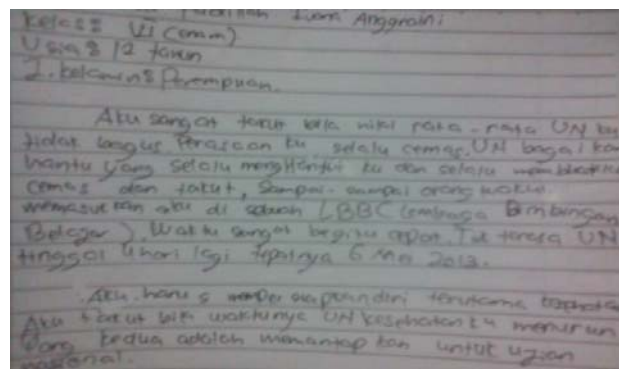 Anggraini
Kelas : VI (enam)
Usia : 12 tahun
J. kelamin : Perempuan.
Aku sangat takut bila nilai rata-rata UN ku
tidak bagus Perasaan ku selalu cemas. UN bagai kan
hantu yang selalu mengHantui ku dan selalu
cemas dan takut, Sampai-sampai orang
memasukkan aku di sebuah LBB (Lembaga Bimbingan
Belajar). Waktu sangat begitu cepat. Tak terasa UN
tinggal 4 hari lagi tepatnya 6 Mei 2013.
Aku harus diri terutama
Aku takut bila waktunya UN kesehatan ku menurun
Yang kedua adalah memantapkan untuk ujian
nasional.